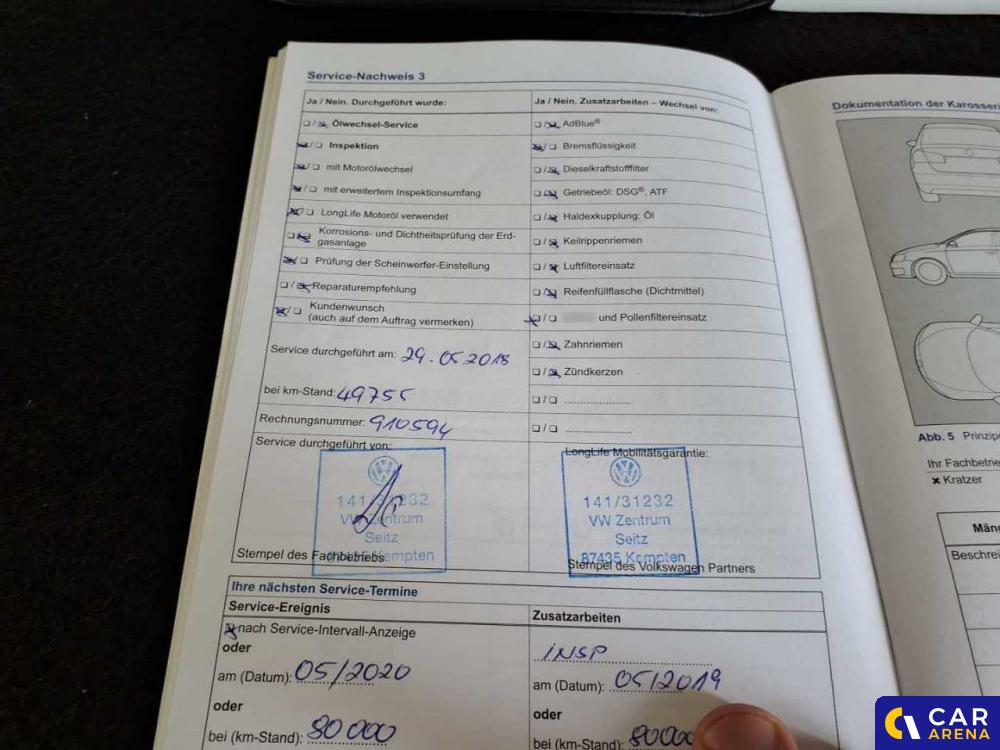 Service-Nachweis 3
Ja / Nein. Durchgeführt wurde:
Ja / Nein. Zusatzarbeiten – Wechsel von:
Ölwechsel-Service
AdBlue®
Inspektion
Bremsflüssigkeit
mit Motorölwechsel
Dieselkraftstofffilter
mit erweitertem Inspektionsumfang
Getriebeöl: DSG®, ATF
LongLife Motoröl verwendet
Haldexkupplung: Öl
Korrosions- und Dichtheitsprüfung der Erd-
gasanlage
Keilrippenriemen
Prüfung der Scheinwerfer-Einstellung
Luftfiltereinsatz
Reparaturempfehlung
Reifenfüllflasche (Dichtmittel)
Kundenwunsch
(auch auf dem Auftrag vermerken)
und Pollenfiltereinsatz
Zahnriemen
Service durchgeführt am: 29.05.2018
Zündkerzen
bei km-Stand: 49755
Rechnungsnummer: 910594
Service durchgeführt von:
LongLife Mobilitätsgarantie:
141/31232
VW Zentrum
Seitz
87435 Kempten
Stempel des Fachbetriebs
141/31232
VW Zentrum
Seitz
87435 Kempten
Stempel des Volkswagen Partners
Ihre nächsten Service-Termine
Service-Ereignis
Zusatzarbeiten
nach Service-Intervall-Anzeige
INSP
oder
am (Datum): 05/2020
am (Datum): 05/2019
oder
oder
bei (km-Stand): 80000
bei (km-Stand): 80000
Dokumentation der Karosseri
Abb. 5 Prinzip
Ihr Fachbetrie
× Kratzer
Män
Beschrei
CAR
ARENA